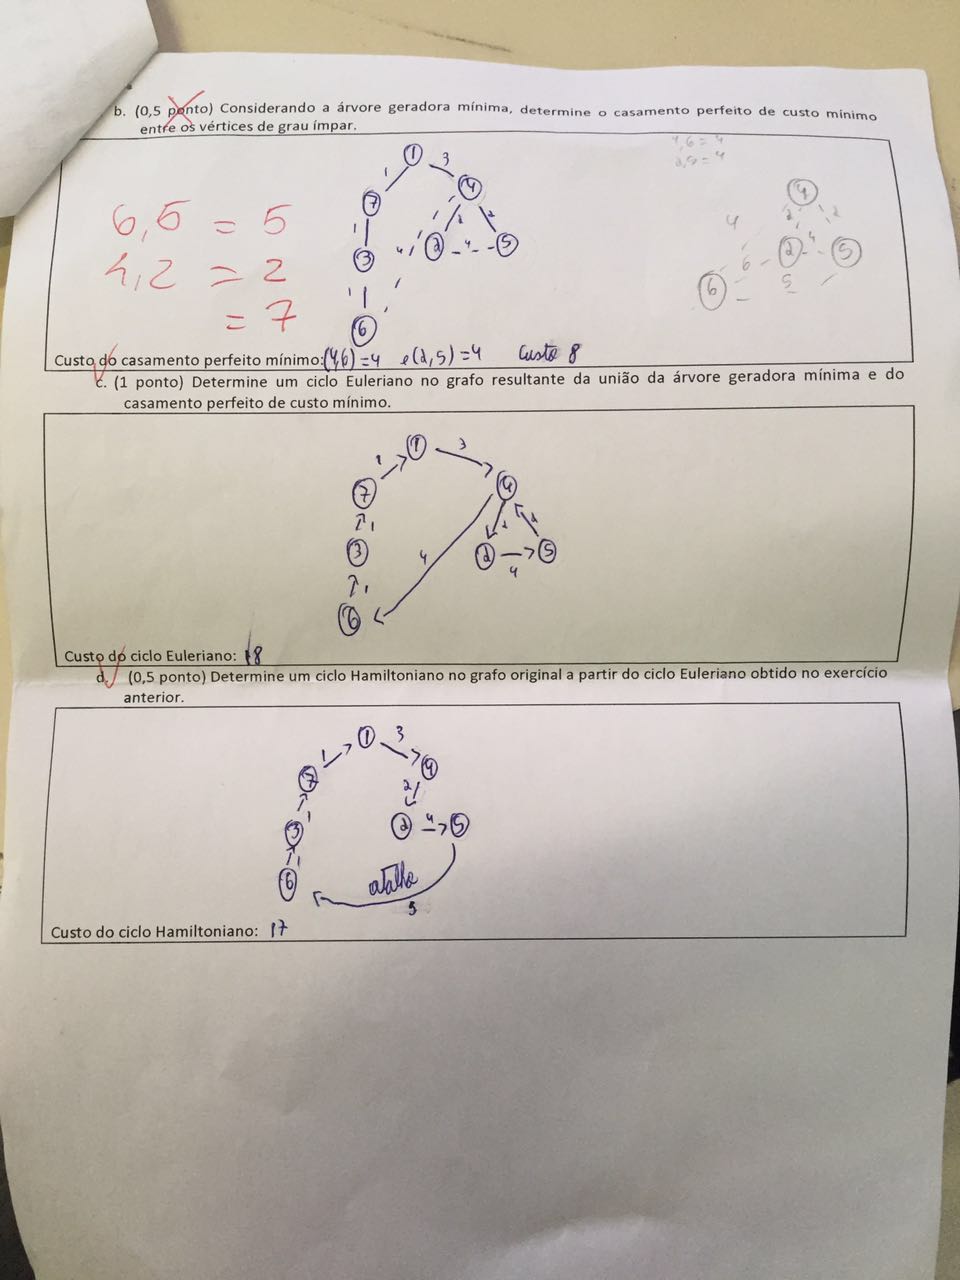 b. (0,5 ponto) Considerando a árvore geradora mínima, determine o casamento perfeito de custo mínimo
entre os vértices de grau ímpar.
4,6 = 4
2,5 = 4
6,5 = 5
4,2 = 2
= 7
1 3
1
7 4
1 2 2
3 4 2 4 5
1
6
4
4 2 2
6 2 4 5
6 5
Custo do casamento perfeito mínimo: (4,6) = 4 e (2,5) = 4 Custo 8
c. (1 ponto) Determine um ciclo Euleriano no grafo resultante da união da árvore geradora mínima e do
casamento perfeito de custo mínimo.
1 3
1
7 4
1 2 2
3 4 2 5
1 4
6
Custo do ciclo Euleriano: 18
d. (0,5 ponto) Determine um ciclo Hamiltoniano no grafo original a partir do ciclo Euleriano obtido no exercício
anterior.
1 3
1
7 4
1 2
3 2 4 5
1
6 atalho
5
Custo do ciclo Hamiltoniano: 17